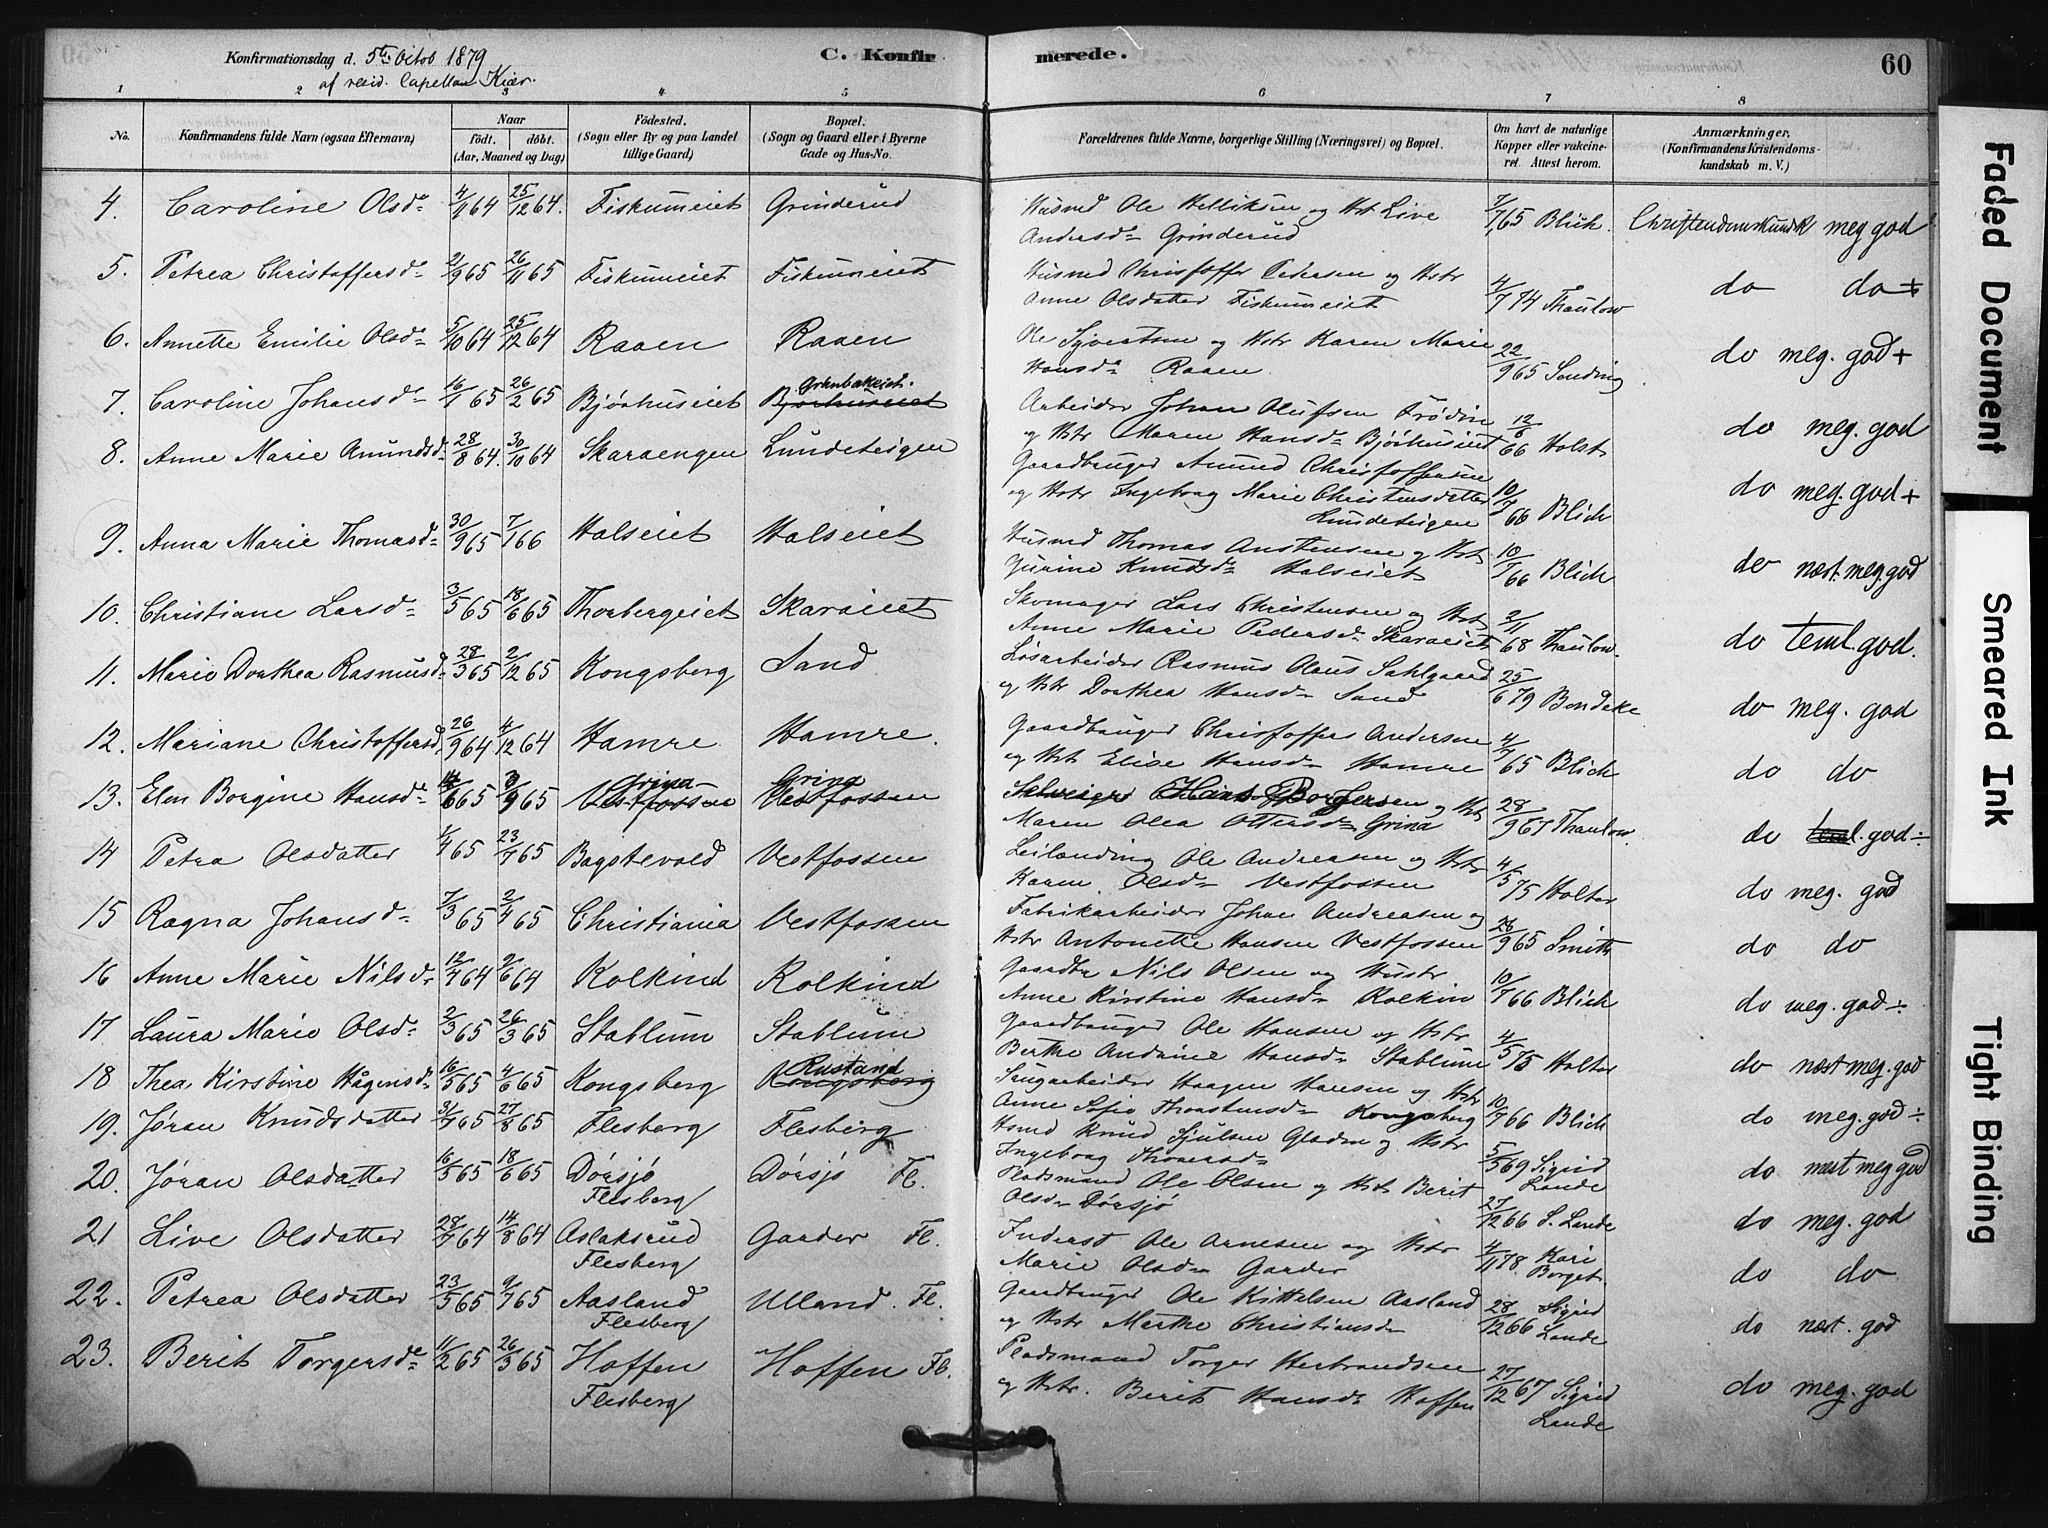 Konfirmationsdag d. 5te Octob 1879
af resid. Capellan Kiær.
C. Konfirmerede.
60
1 2 3 4 5 6 7 8
No. Konfirmandens fulde Navn (ogsaa Efternavn) Naar født. døbt. (Aar, Maaned og Dag) Fødested. (Sogn eller By og paa Landet tillige Gaard) Bopæl. (Sogn og Gaard eller i Byerne Gade og Hus-No. Forældrenes fulde Navne, borgerlige Stilling (Næringsvei) og Bopæl. Om havt de naturlige Kopper eller vakcineret. Attest herom. Anmærkninger. (Konfirmandens Kristendomskundskab m. V.)
4. Caroline Olsd. 4/9 64 25/12 64. Fiskumeiet Grinderud Husmd Ole Helliksen og Hst Live Andersd. Grinderud 7/7 65 Blich. Christendomskundsk meg god
5. Petrea Christoffersd. 2/9 65 26/11 65 Fiskumeiet Fiskumeiet Husmd Christoffer Pedersen og Hstr Anne Olsdatter Fiskumeiet 4/7 74 Thaulow do do +
6. Annette Emilie Olsd. 5/10 64 25/12 64 Raaen Raaen Ole Syvertsen og Hstr Karen Marie Hansd. Raaen 22/9 65 Sending do meg. god +
7. Caroline Johansd. 16/1 65 26/2 65 Bjørhuseiet Bjørhuseiet Arbeider Johan Olufsen Frödin og Hstr Maren Hansd. Bjørhuseiet 12/6 66 Holst do meg. god
8. Anne Marie Amundsd. 28/8 64. 30/10 64 Skaraengen Lundeteigen Gaardbruger Amund Christoffersen og Hstr Ingeborg Marie Christensdatter Lundeteigen 10/7 66 Blich do meg. god +
9. Anna Marie Thomasd. 30/9 65 7/1 66 Halseiet Halseiet Husmd Thomas Anstensen og Hst Gurine Knudsd. Halseiet 10/7 66 Blich do næst. meg. god
10. Christiane Larsd. 3/5 65 18/6 65 Thorbergeiet Skaraeiet Skomager Lars Christensen og Hst Anne Marie Pedersd. Skaraeiet 2/11 68 Thaulow. do teml. god.
11. Marie Dorthea Rasmusd. 28/3 65 2/12 65 Kongsberg Sand Løsarbeider Rasmus Olaus Sahlgaard og Hstr Dorthea Hansd. Sand 25/6 79 Bendeke do meg. god
12. Mariane Christoffersd. 26/9 64 4/12 64 Hamre Hamre. Gaardbruger Christoffer Andersen og Hst Elise Hansd. Hamre 4/7 65 Blich do do
13. Elen Borgine Hansd. 6 65 3/9 65 Grina Vestfossen Grina Vestfossen Selveier Hans Borgersen og Hst Maren Olea Ottersd. Grina 28/9 67 Thaulow. do teml. god ÷
14 Petra Olsdatter 1/4 65 23/7 65 Bagstevold Vestfossen Leilending Ole Andreasen og Hstr Karen Olsd. Vestfossen 4/5 75 Holter do meg. god
15 Ragna Johansd. 7/3 65 2/4 65 Christiania Vestfossen Fabrikarbeider Johan Andreasen og Hstr Antonette Hansen Vestfossen 28/9 65 Smith do do
16 Anne Marie Nilsd. 12/4 64 9/6 64 Kolkind Kolkind Gaardbr Nils Olsen og Hustr Anne Kirstine Hansd. Kolkin 10/7 66 Blich do meg. god ÷
17 Laura Marie Olsd. 2/3 65 26/3 65 Stablum Stablum Gaardbruger Ole Hansen og Hstr Berthe Andrine Hansd. Stablum 4/5 75 Holter do næst meg. god
18 Thea Kirstine Hågensd. 16/5 65 4/6 65 Kongsberg Rustand Kongsberg Sagarbeider Haagen Hansen og Hstr Anne Sofie Thorstensd. Kongsberg 10/7 66 Blich do meg. god ÷
19. Jøran Knudsdatter 31/7 65 27/8 65 Flesberg Flesberg Hsmd Knud Gjulsen og Hstr Ingeborg 5/5 69 Sigrid Lande do næst meg god
20. Jøran Olsdatter 16/5 65 18/6 65 Dørsjø Flesberg Dørsjø Fl. Pladsmand Ole Olsen og Hst Berit Olsd. Dørsjø 27/12 66 S. Lande do meg. god
21 Live Olsdatter 28/7 64 14/8 64 Aslaksrud Flesberg Garder Fl. Inderst Ole Arnesen og Hstr Marie Olsd. Garder 4/11 78. Kari Borget do do
22. Petrea Olsdatter 23/5 65 9/7 65 Aasland Flesberg Ulland. Fl. Gaardbruger Ole Kittelsen Aasland og Hstr Marthe Christiansd. 28/12 66 Sigrid Lande do næst. god
23. Berit Torgersd. 11/2 65 26/3 65 Hoffen Flesberg Hoffen Fl. Pladsmand Torger Herbrandsen og Hstr. Berit Hansd. Hoffen 27/12 67 Sigrid Lande do meg. god
Faded Document
Smeared Ink
Tight Binding